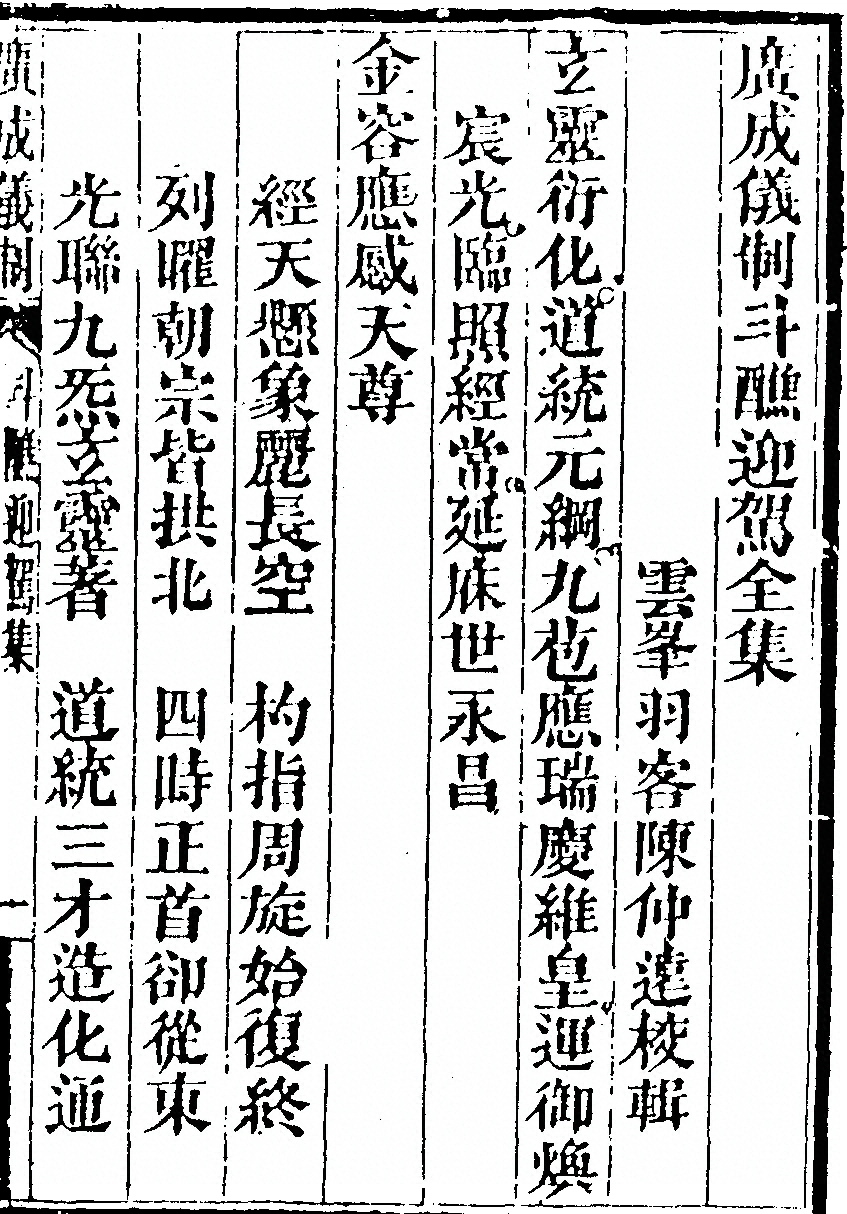 廣成儀制斗醮迎駕全集
雲峯羽客陳仲遠校輯
立靈衍化道統元綱九苞應瑞慶維皇運御煥
宸光臨照經常延庥世永昌
金容應感天尊
經天懸象麗長空　杓指周旋始復終
列曜朝宗皆拱北　四時正首卻從東
光聯九炁立靈著　道統三才造化通
廣成儀制　斗醮迎駕集　一